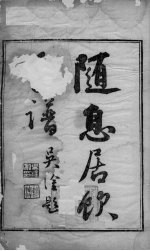 隨息居飲
譜
吳淦題